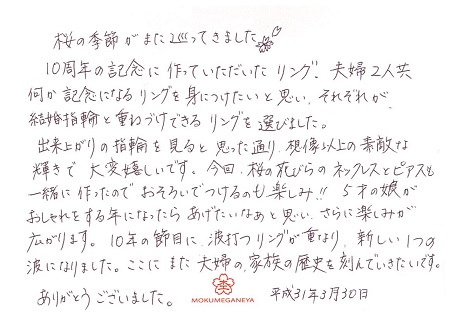 桜の季節がまた巡ってきました
10周年の記念に作っていただいたリング。夫婦2人共
何か記念になるリングを身につけたいと思い、それぞれが
結婚指輪と重ねづけできるリングを選びました。
出来上がりの指輪を見ると思った通り、想像以上の素敵な
輝きで大変嬉しいです。今回、桜の花びらのネックレスとピアスも
一緒に作ったのでおそろいでつけるのも楽しみ!! 5才の娘が
おしゃれをする年になったらあげたいなぁと思い、さらに楽しみが
広がります。10年の節目に、波打つリングが重なり、新しい1つの
波になりました。ここにまた夫婦の、家族の歴史を刻んでいきたいです。
ありがとうございました。
MOKUMEGANEYA
平成31年3月30日